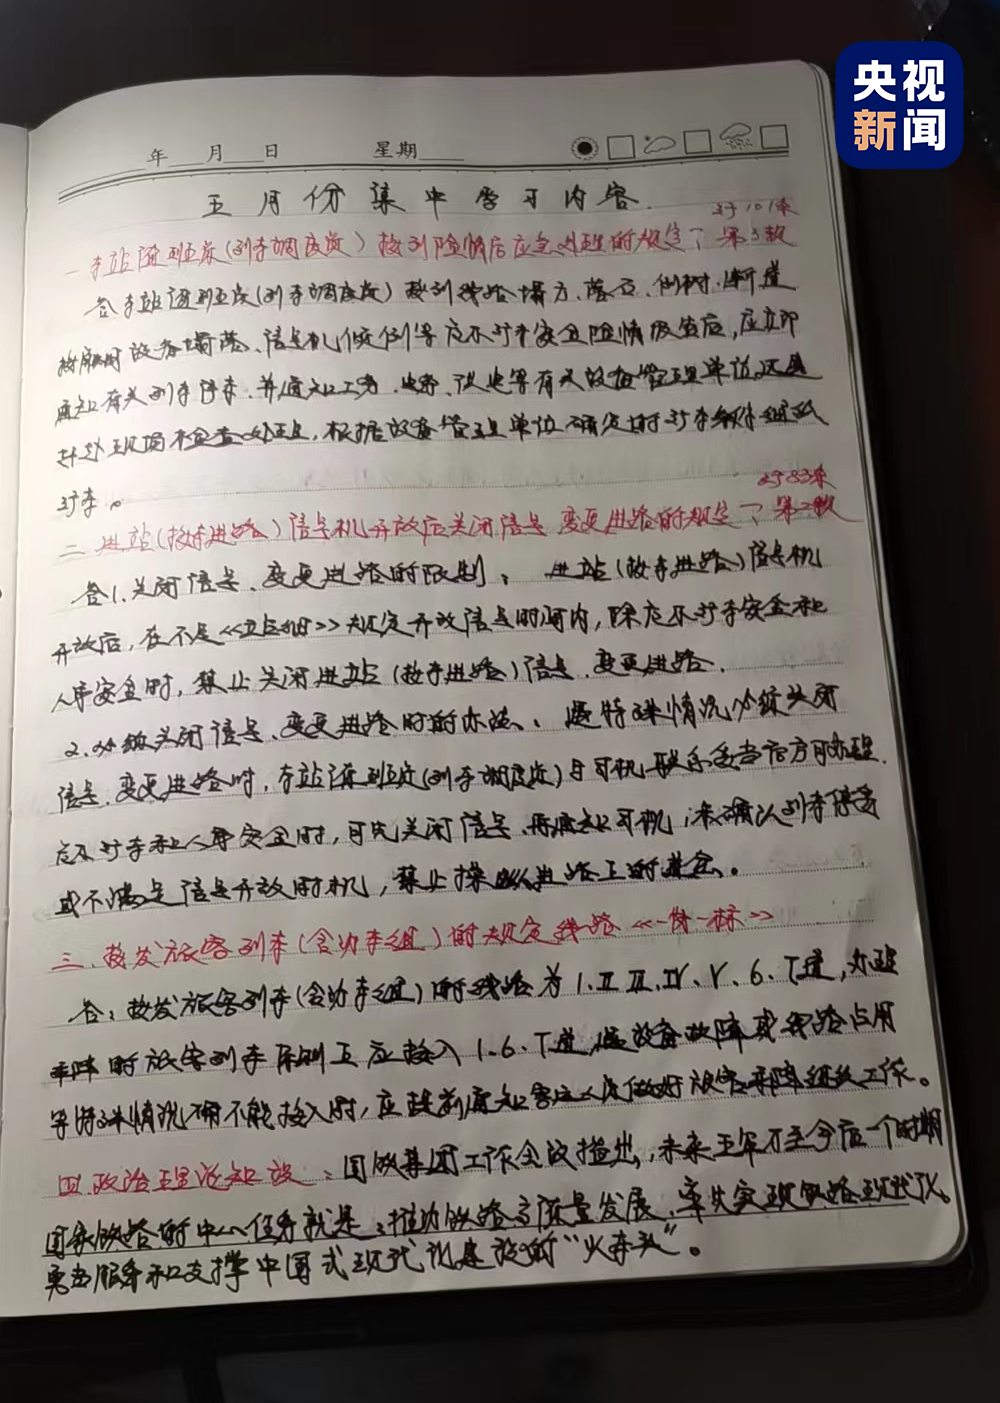 央视
新闻
年 月 日 星期
五月份集中学习内容.
行101条
一 车站值班员(列车调度员)接到险情后应急处理的规定? 第3款
答 车站值班员(列车调度员)接到线路塌方、落石、倒树、断道
设备塌落、信号机倾倒等危及行车安全险情报告后,应立即
通知有关列车停车,并通知工务、电务、供电等有关设备管理单位人员
赶赴现场检查处理,根据设备管理单位确定的行车条件组织
行车。
行83条
二 进站(接车进路)信号机开放后关闭信号、变更进路的规定? 第2款
答1.关闭信号、变更进路的限制: 进站(接车进路)信号机
开放后,在不足《站细》规定开放信号时间内,除危及行车安全和
人身安全时,禁止关闭进站(接车进路)信号、变更进路.
2.必须关闭信号、变更进路时的办法、 遇特殊情况必须关闭
信号、变更进路时,车站值班员(列车调度员)与司机联系妥当后方可办理.
危及行车和人身安全时,可先关闭信号,再通知司机;未确认列车停妥
或不满足信号开放时机,禁止操纵进路上的道岔。
三.接发旅客列车(含动车组)的规定线路《一岗一标》
答:接发旅客列车(含动车组)的线路为1.Ⅱ Ⅲ.Ⅳ、Ⅴ、6、7道,办理
乘降的旅客列车原则上应接入1.6.7道,遇设备故障或线路占用
等特殊情况确不能接入时,应提前通知客运人员做好旅客乘降组织工作。
四 政治理论知识 : 国铁集团工作会议指出,未来五年乃至今后一个时期
国家铁路的中心任务就是:推动铁路高质量发展,率先实现铁路现代化。
勇当服务和支撑中国式现代化建设的“火车头”。